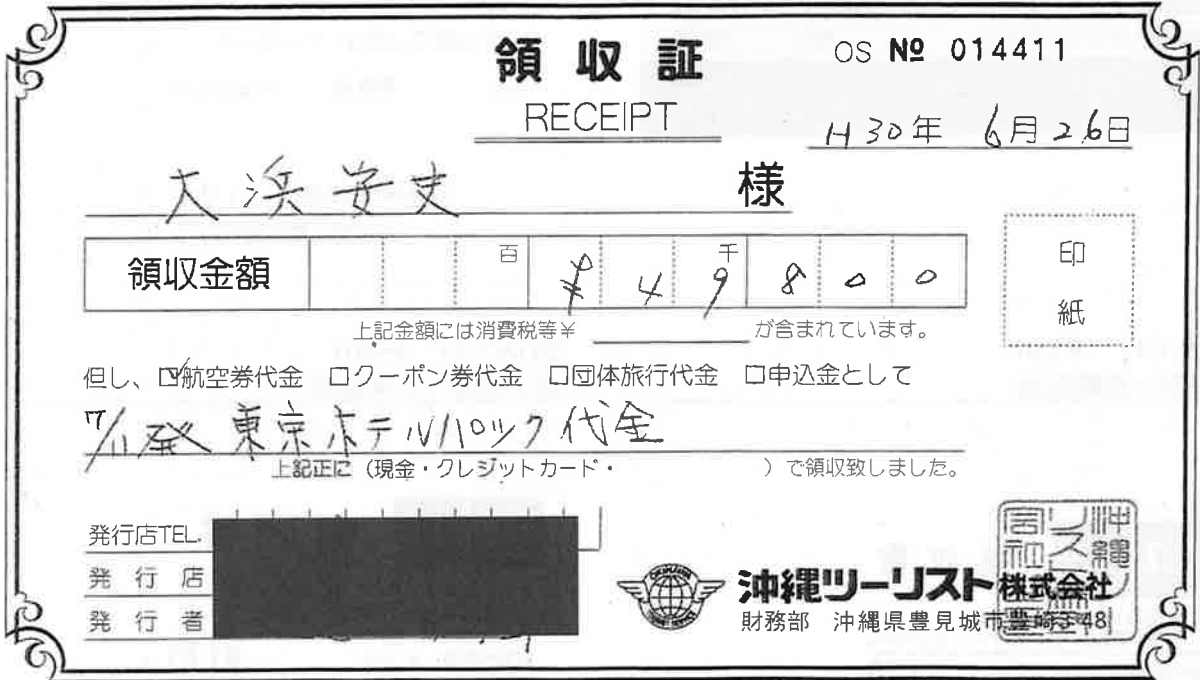 領収証 OS № 014411
RECEIPT
H30年 6月26日
大浜安史 様
領収金額 百 千 ¥49800
印紙
上記金額には消費税等¥ が含まれています。
但し、☑航空券代金 □クーポン券代金 □団体旅行代金 □申込金として
7/11発 東京ホテルパック代金
上記正に(現金・クレジットカード・ )で領収致しました。
発行店TEL.
発行店
発行者
沖縄ツーリスト株式会社
財務部 沖縄県豊見城市豊崎3-48